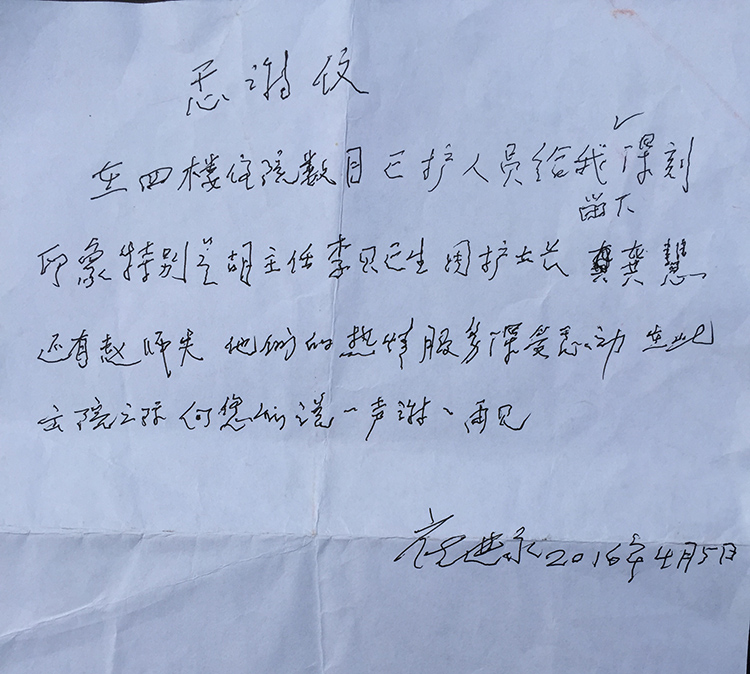 感谢信
在四楼住院数日医护人员给我留下深刻
印象特别是胡主任李贝医生周护士长龚慧
还有赵师失他们的热情服务深受感动在此
出院之际向您们说一声谢谢再见
2016年4月5日